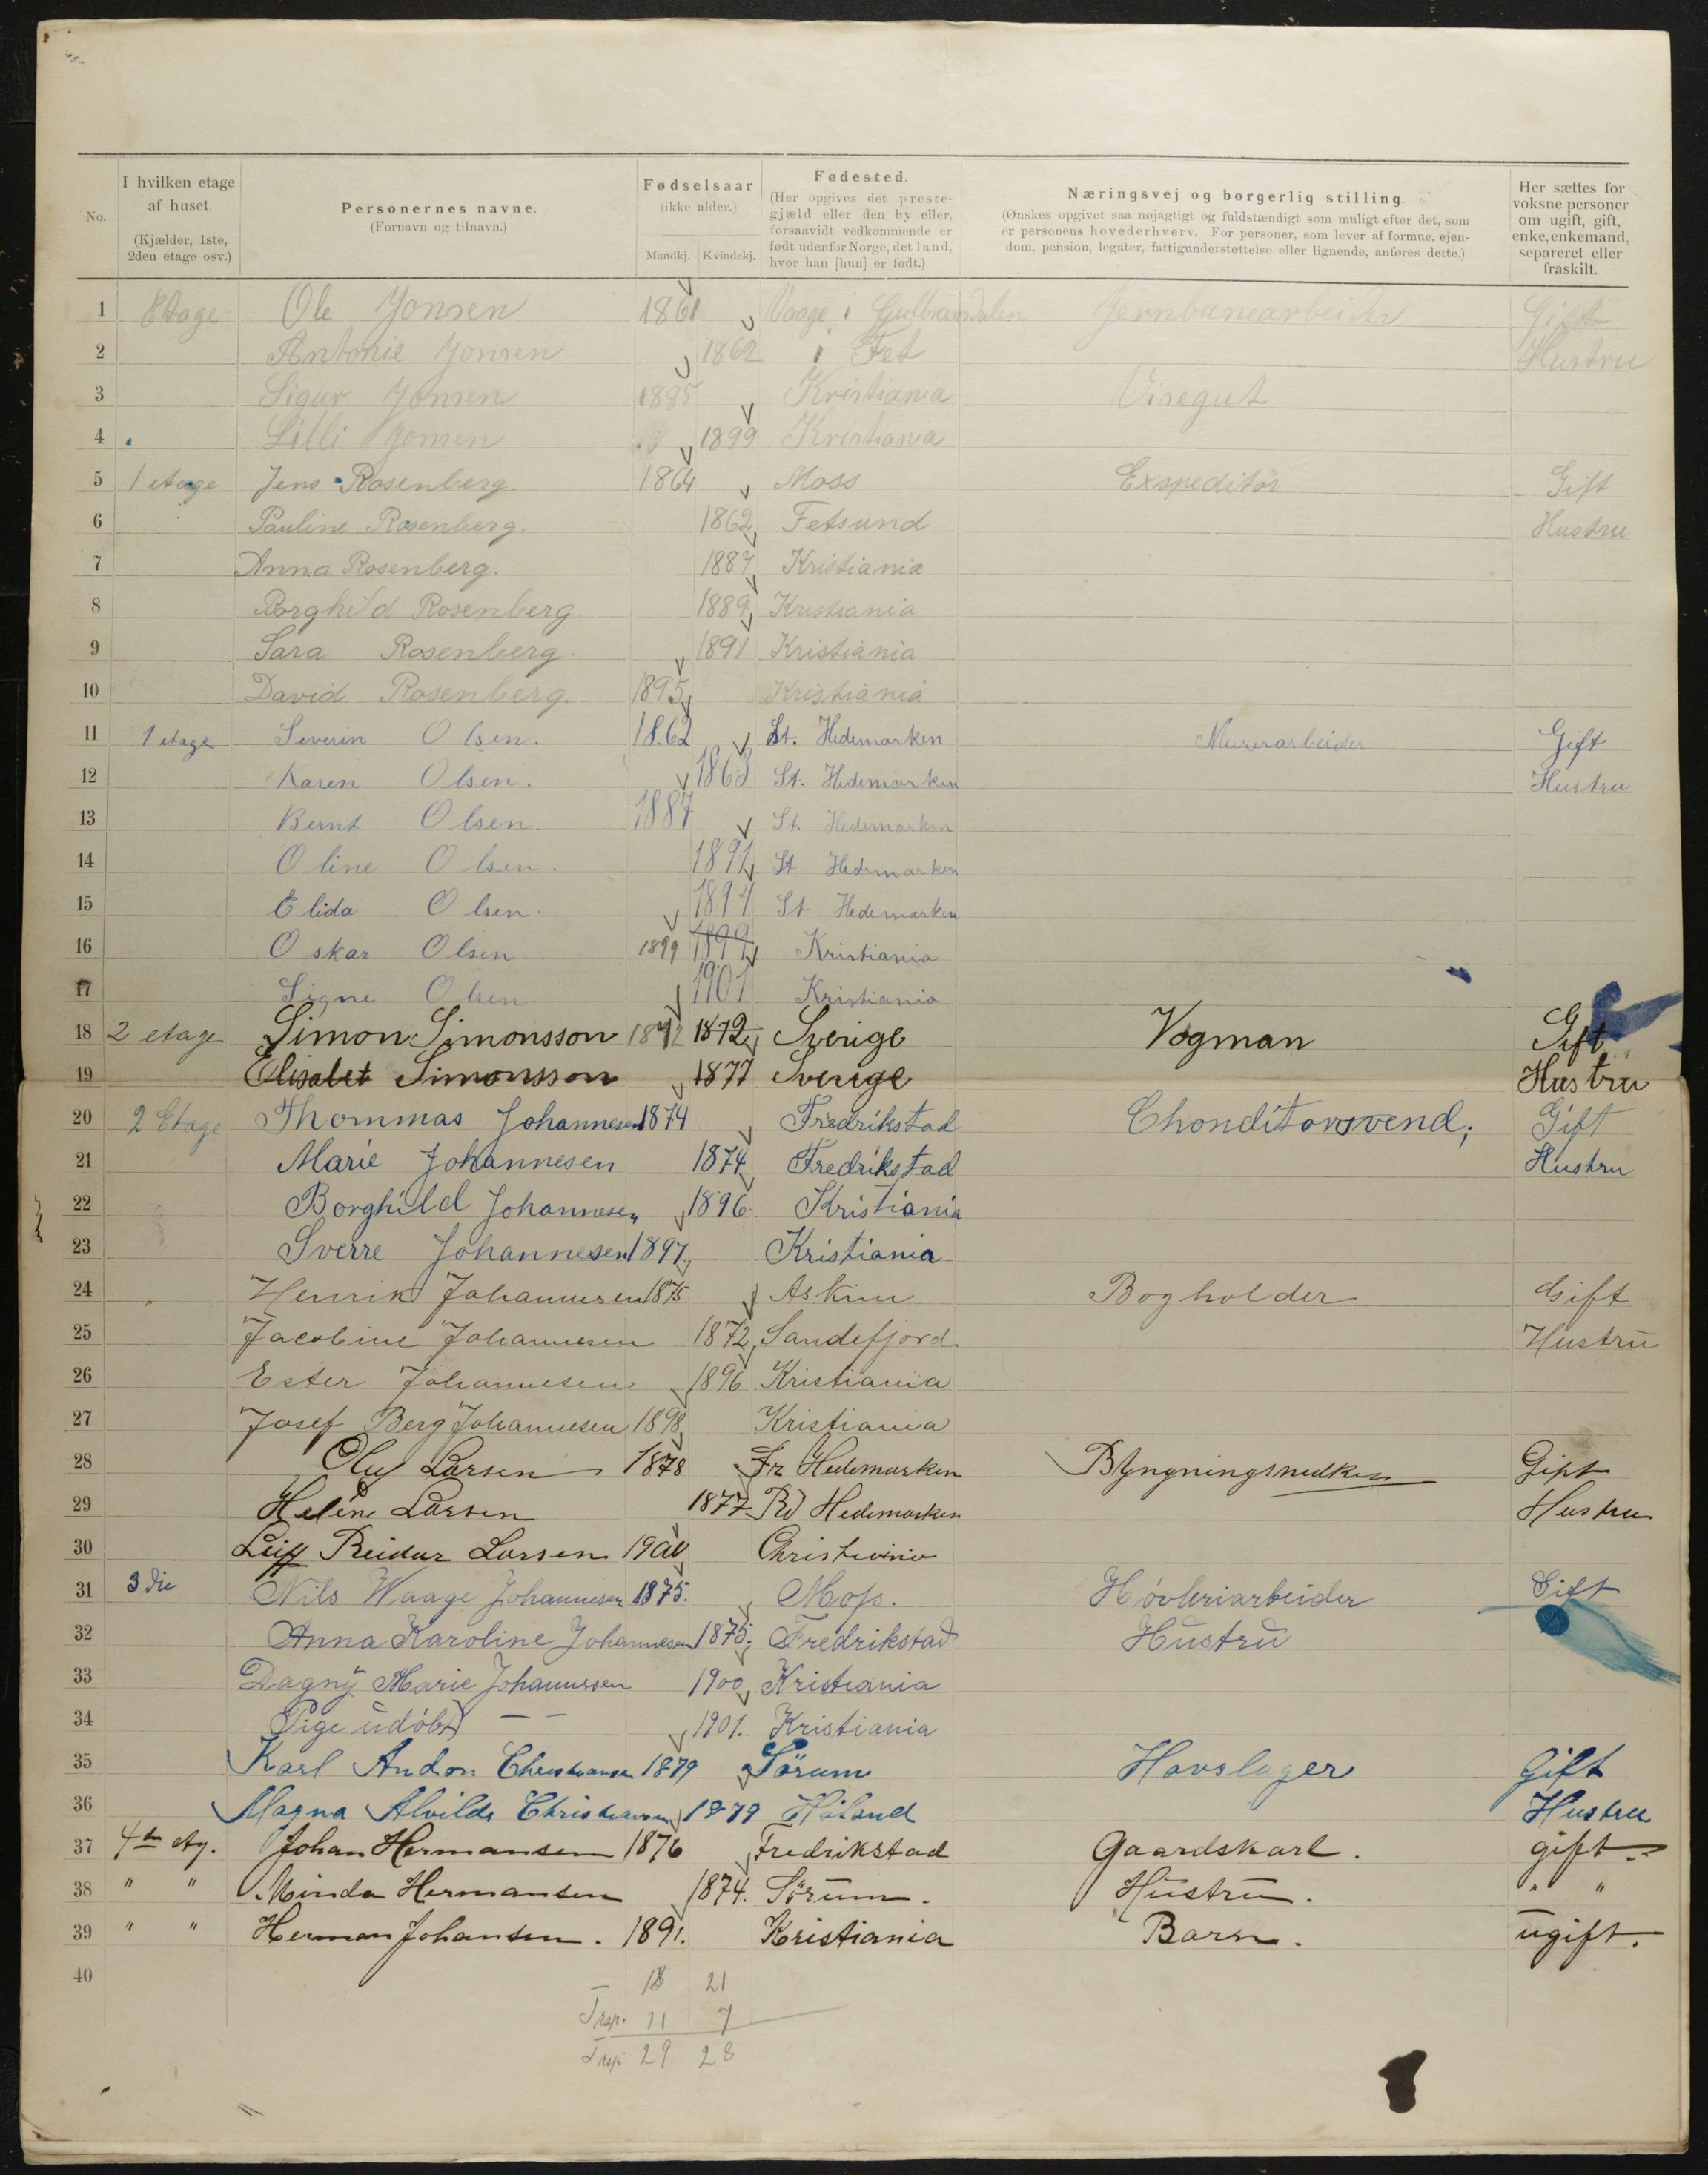 No.
I hvilken etage
af huset.
(Kjælder, 1ste,
2den etage osv.)
Personernes navne.
(Fornavn og tilnavn.)
Fødselsaar
(ikke alder.)
Mandkj. Kvindekj.
Fødested.
(Her opgives det preste-
gjæld eller den by eller,
forsaavidt vedkommende er
født udenfor Norge, det land,
hvor han [hun] er født.)
Næringsvej og borgerlig stilling.
(Ønskes opgivet saa nøjagtigt og fuldstændigt som muligt efter det, som
er personens hovederhverv. For personer, som lever af formue, ejen-
dom, pension, legater, fattigunderstøttelse eller lignende, anføres dette.)
Her sættes for
voksne personer
om ugift, gift,
enke, enkemand,
separeret eller
fraskilt.
1 Etage Ole Jonsen 1861 Vaage i Gulbrandalen Jernbanearbeider Gift
2 Antonie Jonsen 1862 i Fet Hustru
3 Sigur Jonsen 1885 Kristiania Visegut
4 Lilli Jonsen 1899 Kristiania
5 1 etage Jens Rosenberg 1864 Moss Exspeditør Gift
6 Pauline Rosenberg. 1862 Fetsund Hustru
7 Anna Rosenberg. 1887 Kristiania
8 Borghild Rosenberg. 1889 Kristiania
9 Sara Rosenberg. 1891 Kristiania
10 David Rosenberg. 1895 Kristiania
11 1 etage Severin Olsen. 1862 St. Hedemarken Murerarbeider Gift
12 Karen Olsen. 1863 St. Hedemarken Hustru
13 Bernt Olsen. 1887 St. Hedemarken
14 Oline Olsen. 1891 St Hedemarken
15 Elida Olsen. 1897 St Hedemarken
16 Oskar Olsen 1899 1899 Kristiania
17 Signe Olsen 1901 Kristiania
18 2 etage Simon Simonsson 1872 1872 Sverige Vogman Gift
19 Elisabet Simonsson 1877 Sverige Hustru
20 2 Etage Thommas Johannesen 1874 Fredrikstad Chonditorsvend; Gift
21 Marie Johannesen 1874 Fredrikstad Hustru
22 Borghild Johannesen 1896 Kristiania
23 Sverre Johannesen 1897 Kristiania
24 " Henrik Johannesen 1875 Askim Bogholder Gift
25 Jacobine Johannesen 1872 Sandefjord. Hustru
26 Ester Johannesen 1896 Kristiania
27 Josef Berg Johannesen 1898 Kristiania
28 Oluf Larsen 1878 Hedemarken Gift
29 Helene Larsen 1877 Hedemarken Hustru
30 Leif Reidar Larsen Christiania
31 Nils Waage Johannesen 1875. Moss. Høvleriarbeider Gift
32 Anna Karoline Johannesen 1875; Fredrikstad Hustru
33 Dagny Marie Johannesen 1900 Kristiania
34 Pige udøbt — — 1901. Kristiania
35 Karl Andon Christiansen 1879 Sørum Hovslager Gift
36 Magna Alvilde Christiansen 1879 Høland Hustru
37 4de etg. Johan Hermansen 1876 Fredrikstad Gaardskarl. gift.
38 " " Minda Hermansen 1874. Sørum. Hustru. " "
39 " " Herman Johansen. 1891. Kristiania Barn. ugift.
40
— 18 21
Trsp. 11 7
Trsp 29 28